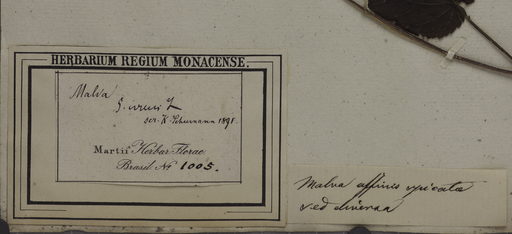 HERBARIUM REGIUM MONACENSE.
Malva
scr. K. Schumann 1891.
Martii Herbar. Florae
Brasil. No 1005.
Malva affinis spicata
sed diversa